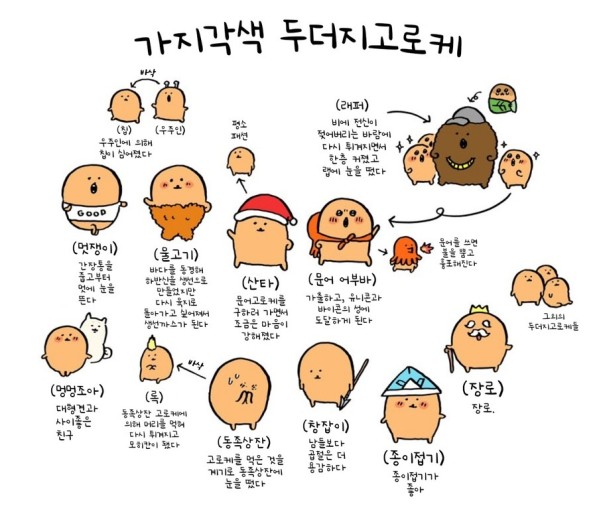 가지각색 두더지고로케
바삭
(칩)
(우주인)
우주인에 의해
칩이 심어졌다
평소
패션
(래퍼)
비에 전신이
젖어버리는 바람에
다시 튀겨지면서
한층 커졌고
랩에 눈을 떴다
GOOD
(멋쟁이)
간장통을
줍고부터
멋에 눈을
뜬다
(물고기)
바다를 동경해
하반신을 생선으로
만들었지만
다시 육지로
돌아가고 싶어져서
생선까스가 된다
(산타)
문어고로케를
구하러 가면서
조금은 마음이
강해졌다
(문어 어부바)
가출하고, 유니콘과
바이콘의 성에
도달하게 된다
문어를 쓰면
불을 뿜고
흉포해진다
그외의
두더지고로케들
(멍멍조아)
대형견과
사이좋은
친구
(륵)
동족상잔 고로케에
의해 머리를 먹혀
다시 튀겨지고
모히칸이 됐다
바삭
(동족상잔)
고로케를 먹은 것을
계기로 동족상잔에
눈을 떴다
(창잡이)
남들보다
곱절은 더
용감하다
(종이접기)
종이접기가
좋아
(장로)
장로.